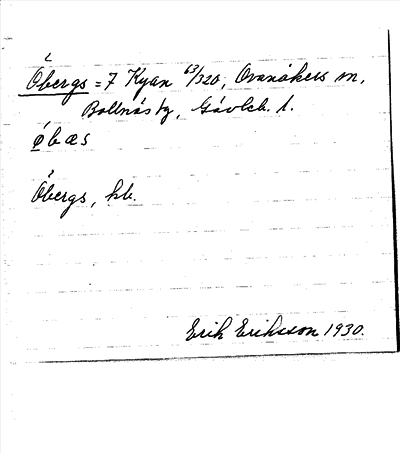 Öbergs = 7 Kyan 63/320, Ovanåkers sn,
Bollnäs tg, Gävleb. l.
øbæs
Öbergs, kb.
Erik Eriksson 1930.